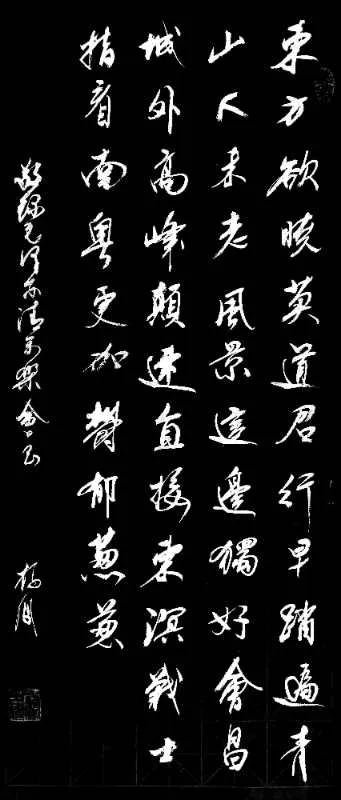 東方欲曉莫道君行早踏遍青
山人未老風景這邊獨好會昌
城外高峰顛連直接東溟戰士
指看南粵更加鬱郁蔥蔥
敬録毛澤东清平樂會昌